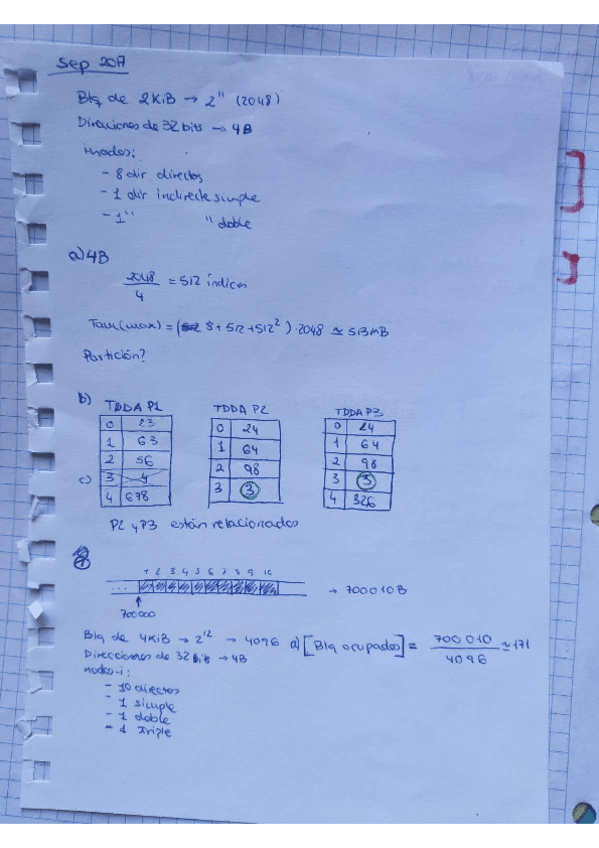 Sep 2017
Blq de 2KiB → 2¹¹ (2048)
Direcciones de 32 bits → 4B
inodos:
- 8 dir directos
- 1 dir indirecte simple
- 1 " " doble
a) 4B
2048/4 = 512 índices
Tam(max) = ( 8 + 512 + 512²) · 2048 ≃ 513MB
Partición?
b)
TDDA P1
0 23
1 63
2 56
3 4
4 678
TDDA P2
0 24
1 64
2 98
3 3
TDDA P3
0 24
1 64
2 98
3 3
4 326
c)
P2 y P3 están relacionados
1 2 3 4 5 6 7 8 9 10
... → 700010B
700000
Blq de 4KiB → 2¹² → 4096 a) [Blq ocupados] = 700 010/4096 ≃ 171
Direcciones de 32 bits → 4B
nodos-i:
- 10 directos
- 1 simple
- 1 doble
- 1 triple